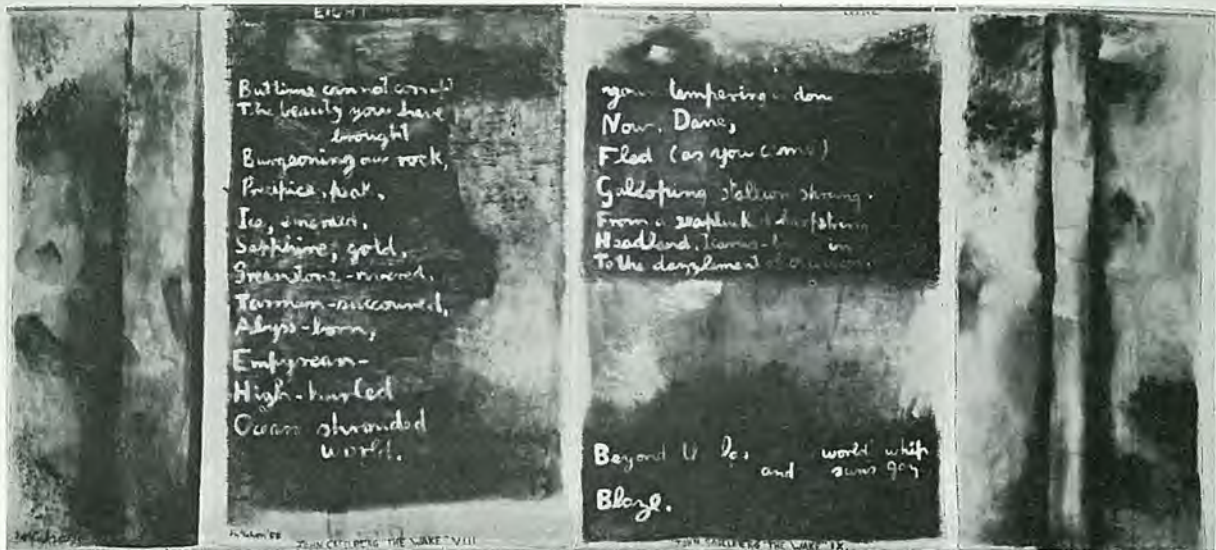 EIGHT
But time cannot
The beauty you have
brought
Burgeoning our rock,
Precipice, peak,
Ice, emerald,
Sapphire, gold,
Greenstone-rivered,
Tasman-succoured,
Abyss-born,
Empyrean-
High-hurled
Ocean shrouded
world.
McCahon '58
JOHN CASELBERG THE WAKE VIII
your tempering is done
Now, Dane,
Fled (as you came)
Galloping stallion strong.
From a
Headland, Icarus- in
To the dazzlement of
Beyond world whip
and suns gay
Blaze.
JOHN CASELBERG "THE WAKE" IX.